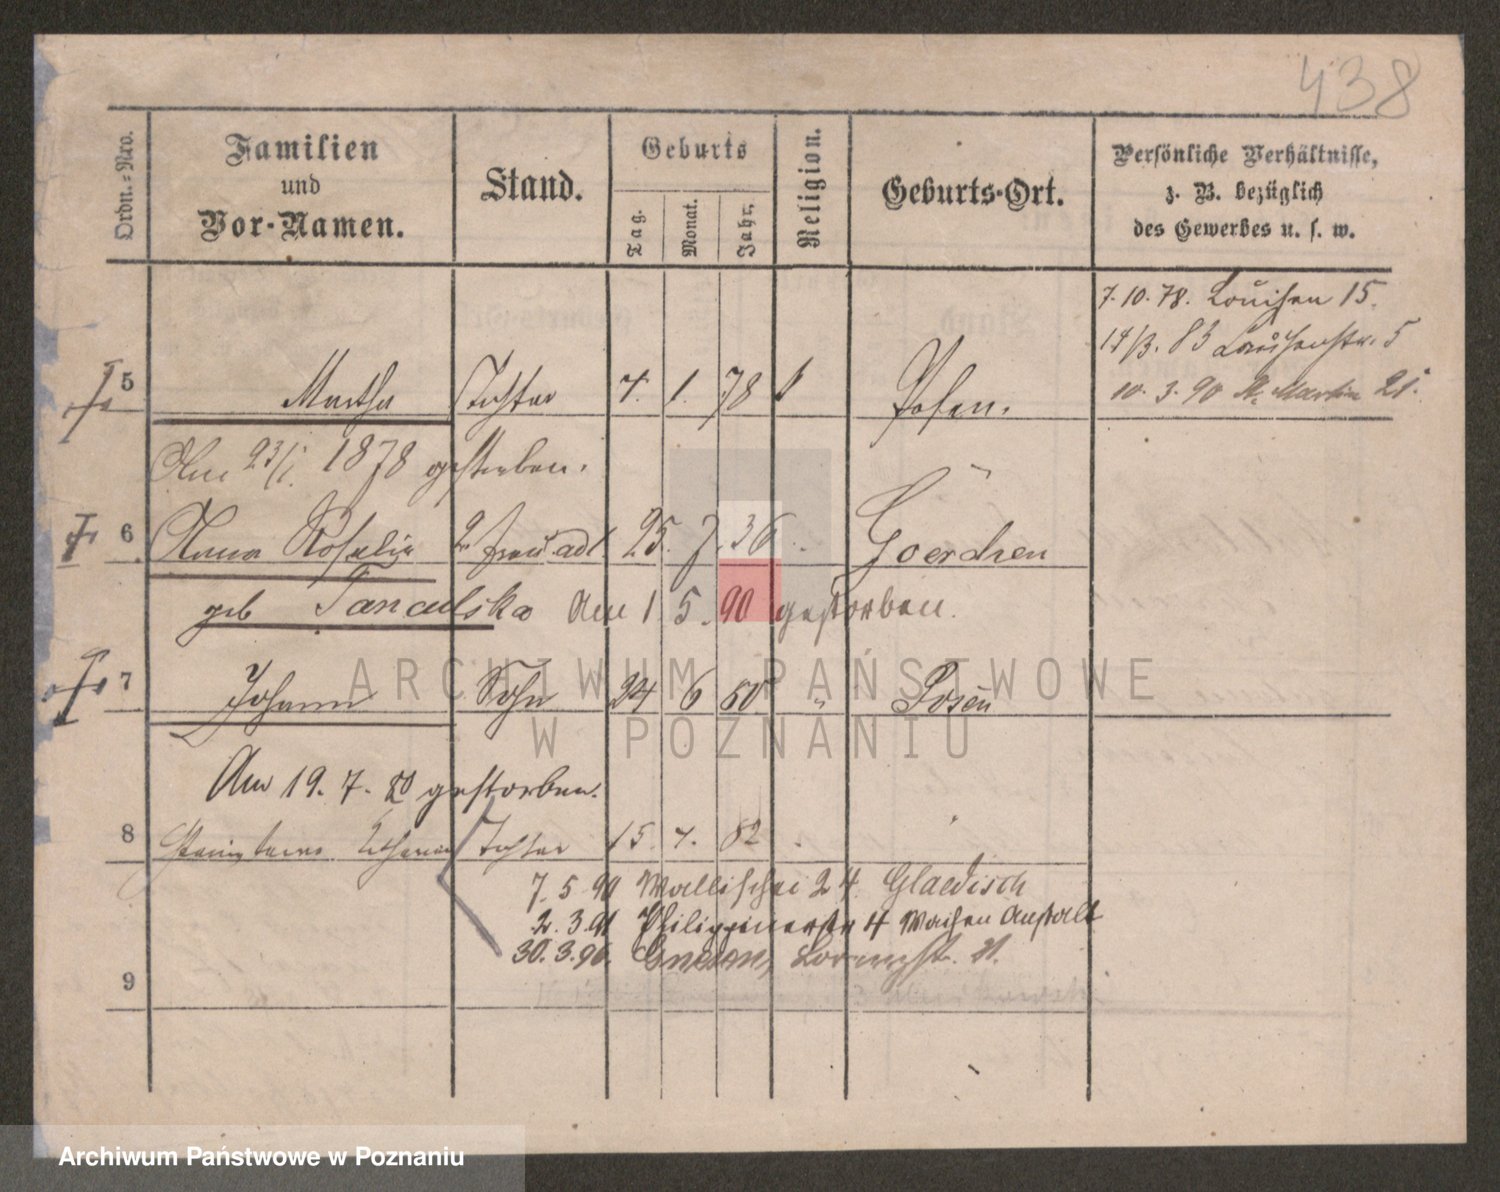 438
Ordn.-Nro.
Familien
und
Vor-Namen.
Stand.
Geburts
Tag.
Monat.
Jahr.
Religion.
Geburts-Ort.
Persönliche Verhältnisse,
z. B. bezüglich
des Gewerbes u. s. w.
7. 10. 78. Louisen 15.
14/3. 83 Louisenstr. 5
10. 3. 90 St. Martin 21.
5 Martha Tochter 7. 1. 78 Posen.
Am 23/1. 1878 gestorben.
6 Anna Rosalie 2. Frau 25. 7. 36. Goerchen
geb Am 1 5. 90 gestorben.
7 Johann Sohn 24 6 80 " Posen
Am 19. 7. 80 gestorben.
8 Tochter 15. 7. 82
7. 5 90 Wallischei 24. Gladisch
2. 3. 91 Philippinerstr 4 Waisen Anstalt
30. 3. 96. Gnesen,
9
ARCHIWUM PAŃSTWOWE
W POZNANIU
Archiwum Państwowe w Poznaniu